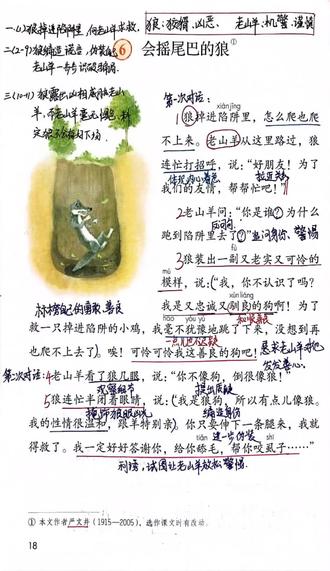 一.(1)狼掉进陷阱里,向老山羊求救。
狼:狡猾、凶恶、 老山羊:机警、谨慎
二.(2-9)狼编造谎言,伪装自己
老山羊一步步识破狼
三.(10-11)狼露出凶相威胁老山
羊,而老山羊毫无畏惧,料
定狼不会有好下场
6 会摇尾巴的狼①
第一次对话:
xiàn jǐng
1狼掉进陷阱里,怎么爬也爬
不上来。老山羊从这里路过,狼
连忙打招呼,说:“好朋友!为了
拉近关系
我们的友情,帮帮忙吧!”
2老山羊问:“你是谁?为什么
反问句
跑到陷阱里去了?”追问身份、警惕
3狼装出一副又老实又可怜的
mú
模样,说:“我,你不认识吗?
xùn liáng
我是又忠诚又驯良的狗啊!为了
标榜自己的勇敢、善良
háo yóu yù
救一只掉进陷阱的小鸡,我毫不犹豫地跳了下来,没想到再
一点儿也不迟疑
也爬不上去了。唉!可怜可怜我这善良的狗吧!
恳求老山羊对他
发发善心。
第二次对话:
4老山羊看了狼几眼,说:“你不像狗,倒很像狼!”
观察细节
提出质疑
5狼连忙半闭着眼睛,说:“我是狼狗,所以有点儿像狼。
掩饰狼眼凶光
编造身份
我的性情很温和,跟羊特别亲。你只要伸下一条腿来,我就
进一步伪装
tiǎn shī
得救了。我一定好好答谢你,给你舔毛,帮你咬虱子……”
利诱,试图让老山羊放松警惕。
① 本文作者严文井(1915—2005),选作课文时有改动。
18